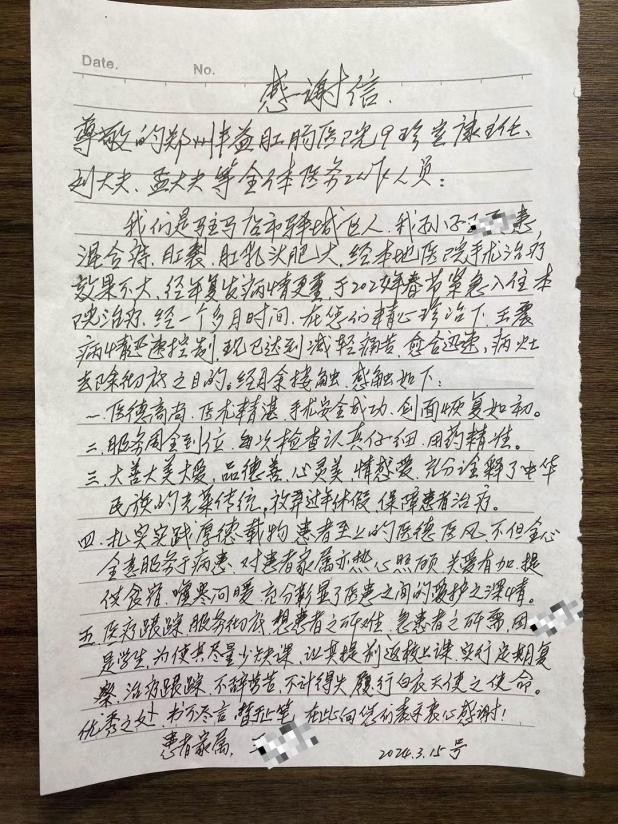 Date.
No.
感谢信.
尊敬的郑州丰益肛肠医院9珍室 主任、
刘大夫、孟大夫等全体医务工作人员:
我们是驻马店市驿城区人.我孙子 患,
混合痔,肛裂,肛乳头肥大,经本地医院手术治疗
效果不大,经年复发病情更重,于2024年春节紧急入住本
院治疗.经一个多月时间.在您们精心珍治下,王震
病情迅速控制,现已达到减轻痛苦,愈合迅速,病灶
去除彻底之目的。经月余接触,感触如下:
一.医德高尚.医术精湛,手术安全成功,创面恢复如初。
二.服务周全到位,每次检查认真仔细.用药精准。
三.大善大美大爱,品德善,心灵美,情感爱.充分诠释了中华
民族的光荣传统.放弃过年休假.保障患者治疗。
四.扎实实践厚德载物 患者至上的医德医风.不但全心
全意服务于病患,对患者家属亦热心照顾.关爱有加.提
供食宿.嘘寒问暖 充分彰显了医患之间的爱护之深情。
五.医疗跟踪,服务彻底,想患者之所想、急患者之所需,因
是学生,为使其尽量少缺课,让其提前返校上课.实行定期复
察,治疗跟踪,不辞劳苦.不计得失 履行白衣天使之使命。
优秀之处,书不尽言,暂止笔,在此向您们表示衷心感谢!
患者家属,
2024.3.15号